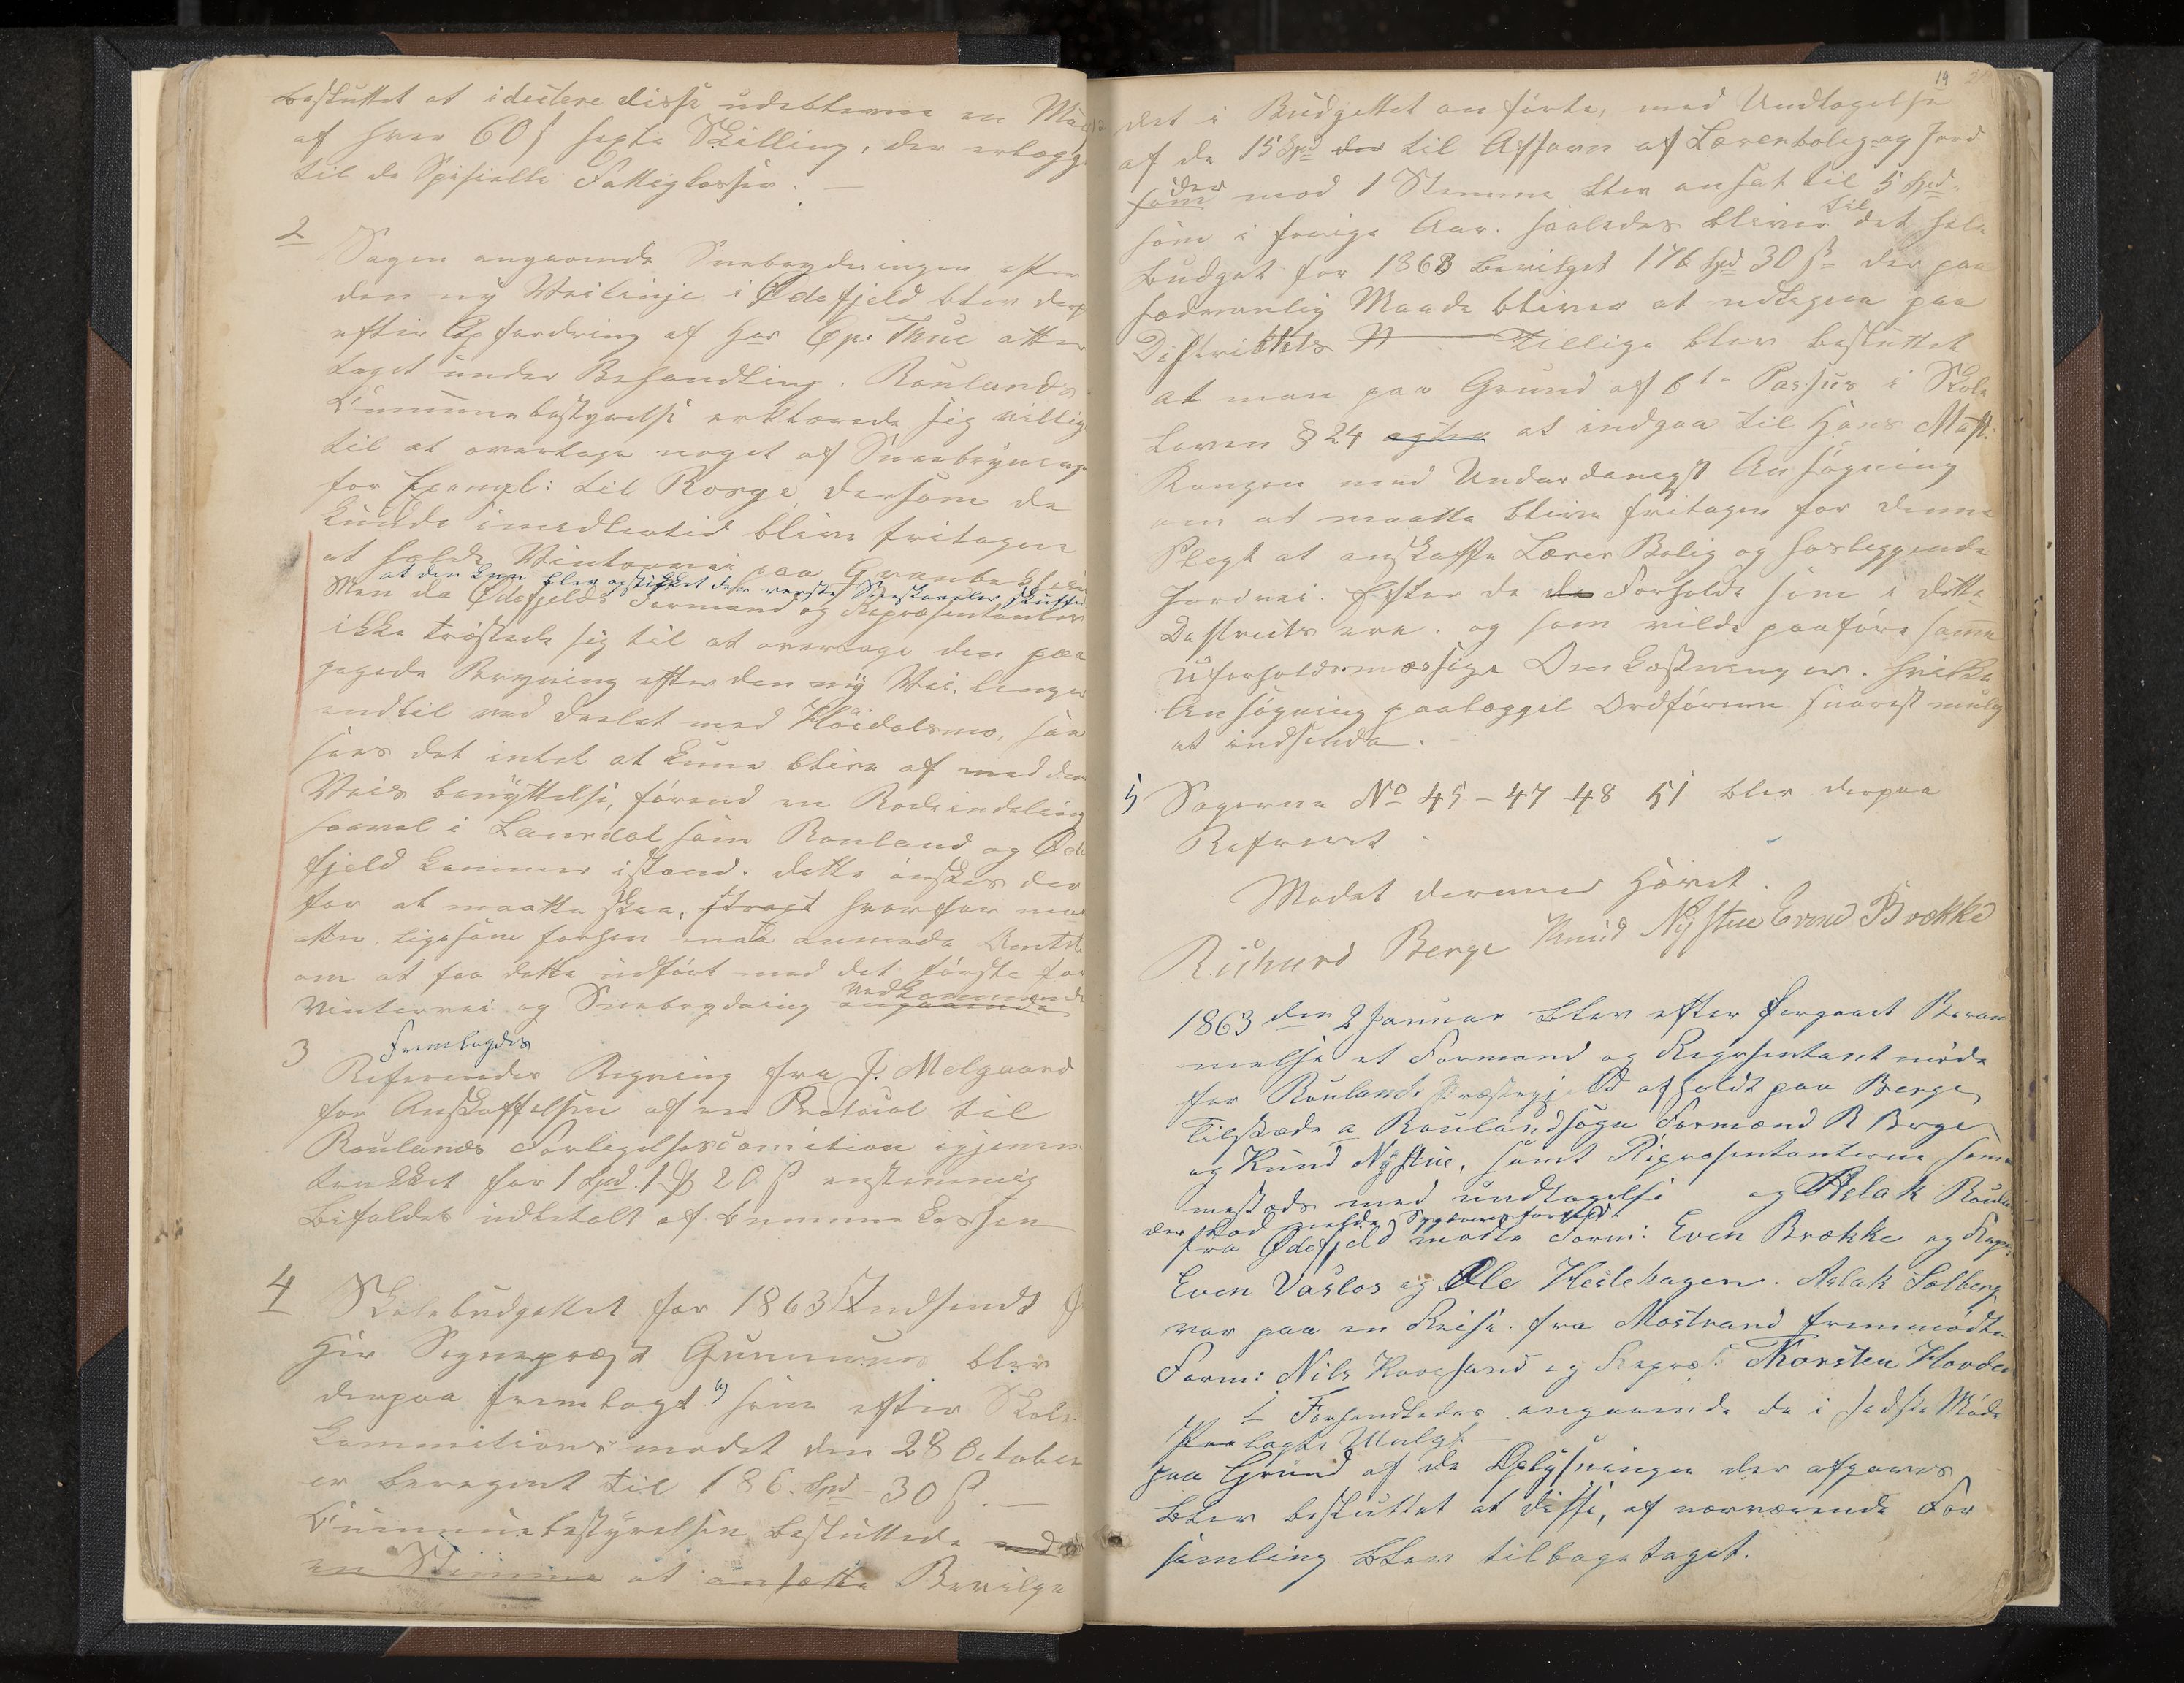 besluttet at idectere disse udeblevne en Mulct
af hver 60 s sexti Skilling, der erlægges
til de Spesielle Fattigkasser. —
2 Sagen angaaende Snebrydningen efter
den ny Veilinje i Ødefjeld blev derp
efter Opfordring af Hr Cp. Thue atter
taget under Behandling. Raulands
Comunebestyrelse erklærede sig villig
til at overtage noget af Snebrydning
for Exempel: til Borge, dersom de
kunde imedlertid blive fritagen
at holde Vinterveie paa
at den kun blev opstikket
Men da Ødefjelds Formænd og Repræsentanter
ikke trøstede sig til at overtage den paa
Brydning efter den ny Vei, lenger
endtil ved Deelet med Høidalsmo, saa
sees det intet at kune blive af med den
Veis benyttelse, førend en Rodeindeling
saavel i Laurdal som Rauland og Øde
fjeld kommer istand. dette ønskes der
for at maatte skee, stragt hvorfor man
ligesom forhen maa anmode Amtet
om at faa dette udført med det første for
Vintervei og Snebrydning angaaende
Vedkommende
3 Fremlagdes
Refereredes Regning fra J. Melgaard
for Anskaffelsen af en Protocol til
Raulands Forligelsescomition igjenem
trukket for 1 Spd. 1 ₰ 20 s enstemmig
Bifaldes udbetalt af Comune Kassen
4 Skolebudgettet for 1863 Indsendt f
Hr Sognepræst Gunnerus blev
derpaa fremlagt a) som efter Skole
Commitionsmødet den 28 October
er beregnet til 186 Spd - 30 s. —
Communebestyrelsen besluttede med
en Stemme at ansætte Bevilge
19
det i Budgettet anførte, med Undtagelse
af de 15 Spd der til Afsavn af Lærerbolig og Jord
der
som mod 1 Stemme blev ansat til 5 Spd
som i forrige Aar. saaledes bliver til det hele
Budget for 1863 bevilget 176 Spd 30 s der paa
sædvanlig Maade bliver at udlignes paa
Distriktets Tillige blev besluttet
at man paa Grund af 6te Passus i Skole
Loven § 24 agter at indgaa til Hans Mast.
Kongen med Underdanigst Ansøgning
om at maatte blive fritagen for denne
Plegt at anskaffe Lærer Bolig og hosleggende
Jordvei. Efter de de Forholde som i dette
Destrict ere. og som vilde paaføre samme
uforholdsmæssige Omkostninger. hvilke
Ansøgning paalægges Ordføreren snarest mulig
at indsende.
5 Sagerne No 45 - 47 48 51 blev derpaa
Refereret
Mødet dermed Hævet.
Richard Berge Knud Nystue Evend Brække
1863 den 2 Januar blev efter forgaaet Beram
melse et Formænd og Repræsentant møde
for Raulands Præstegjeld afholdt paa Berge
Tilstæde a Raulandsogn Formænd R Berge
og Knud Nystue, samt Representanterne samme
steds med undtagelse og Aslak Rauland
der lod melde Sygdomsforfald
fra Ødefjeld mødte Form: Even Brække og Rep.
Even Vaslos og Ole Heslehagen. Aslak Solberg
var paa en Reise. fra Møstrand fremmødte
Form: Nils Kaasund og Repræs: Thorsten Hovden
1 Forhandledes angaaende de i sidste Møde
Paalagte Mulgt
paa Grund af de Oplysninger der afgaves
blev besluttet at disse, af nærværende For
samling blev tilbagetaget.